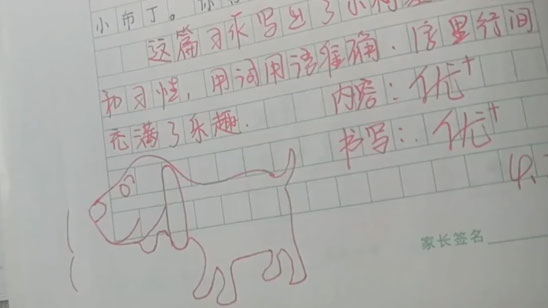 小布丁。
这篇习作写出了小狗
和习性，用词用语准确．信里行间
充满了乐趣．
内容：优+
书写：优+
家长签名